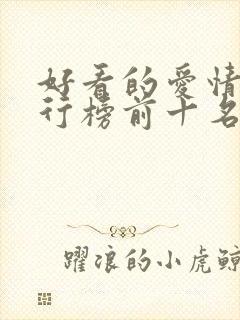 好看的爱情
行榜前十名
躍浪的小虎鯨